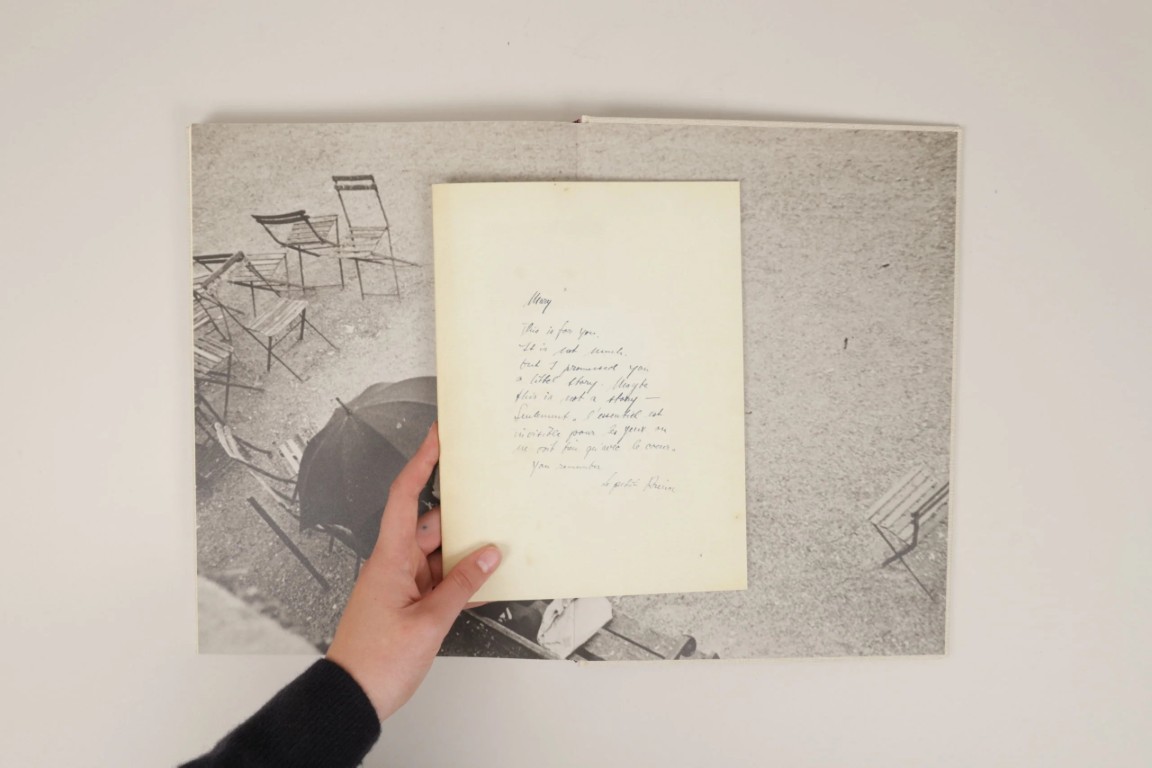 "Mary"
This is for you.
It is not much.
but I promised you
a littel story. Maybe
this is not a story —
Seulement, l'essentiel est
invisible pour les yeux on
ne voit bien qu'avec le coeur.
You remember
Le petit Prince